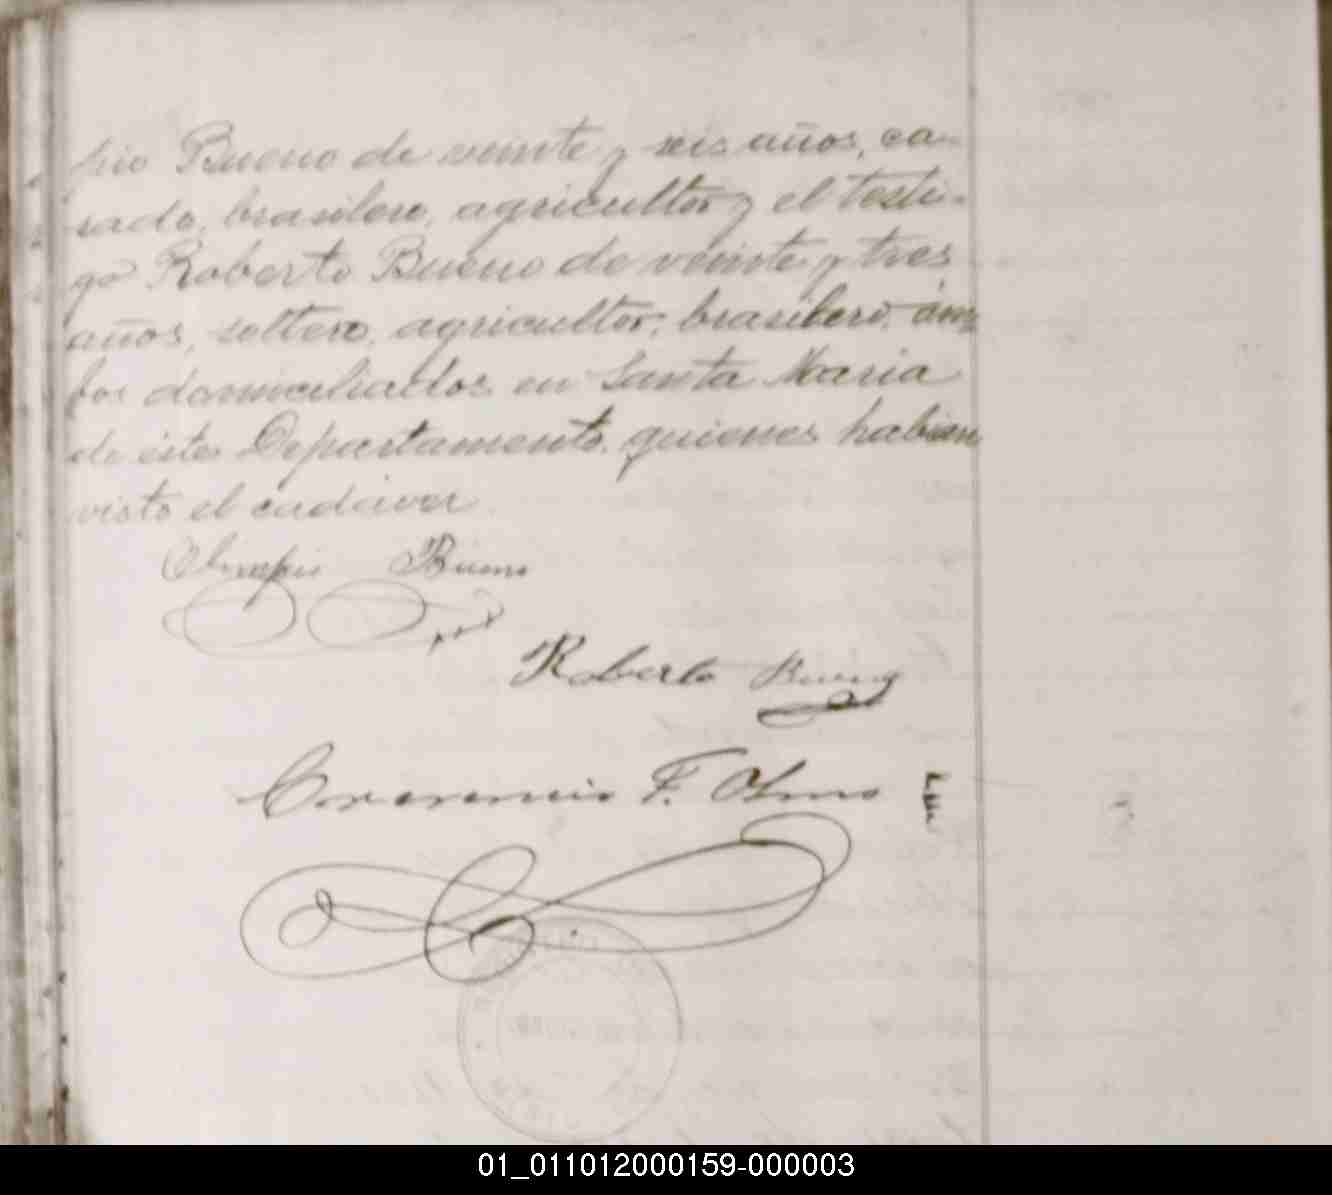 pio Bueno de veinte y seis años, ca-
sado, brasilero, agricultor y el testi-
go Roberto Bueno de veinte y tres
años, soltero, agricultor, brasilero, ám-
bos domiciliados en Santa Maria
de éste Departamento, quienes habian
visto el cadáver.
Olimpio Bueno
Roberto Bueno
F. Olmo
01_011012000159-000003